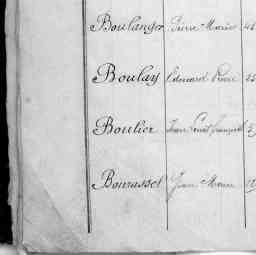 Boulanger Pierre Marie
Boulay Edouard Pierre
Boulier Jean Louis François
Bourasset Jean Marie